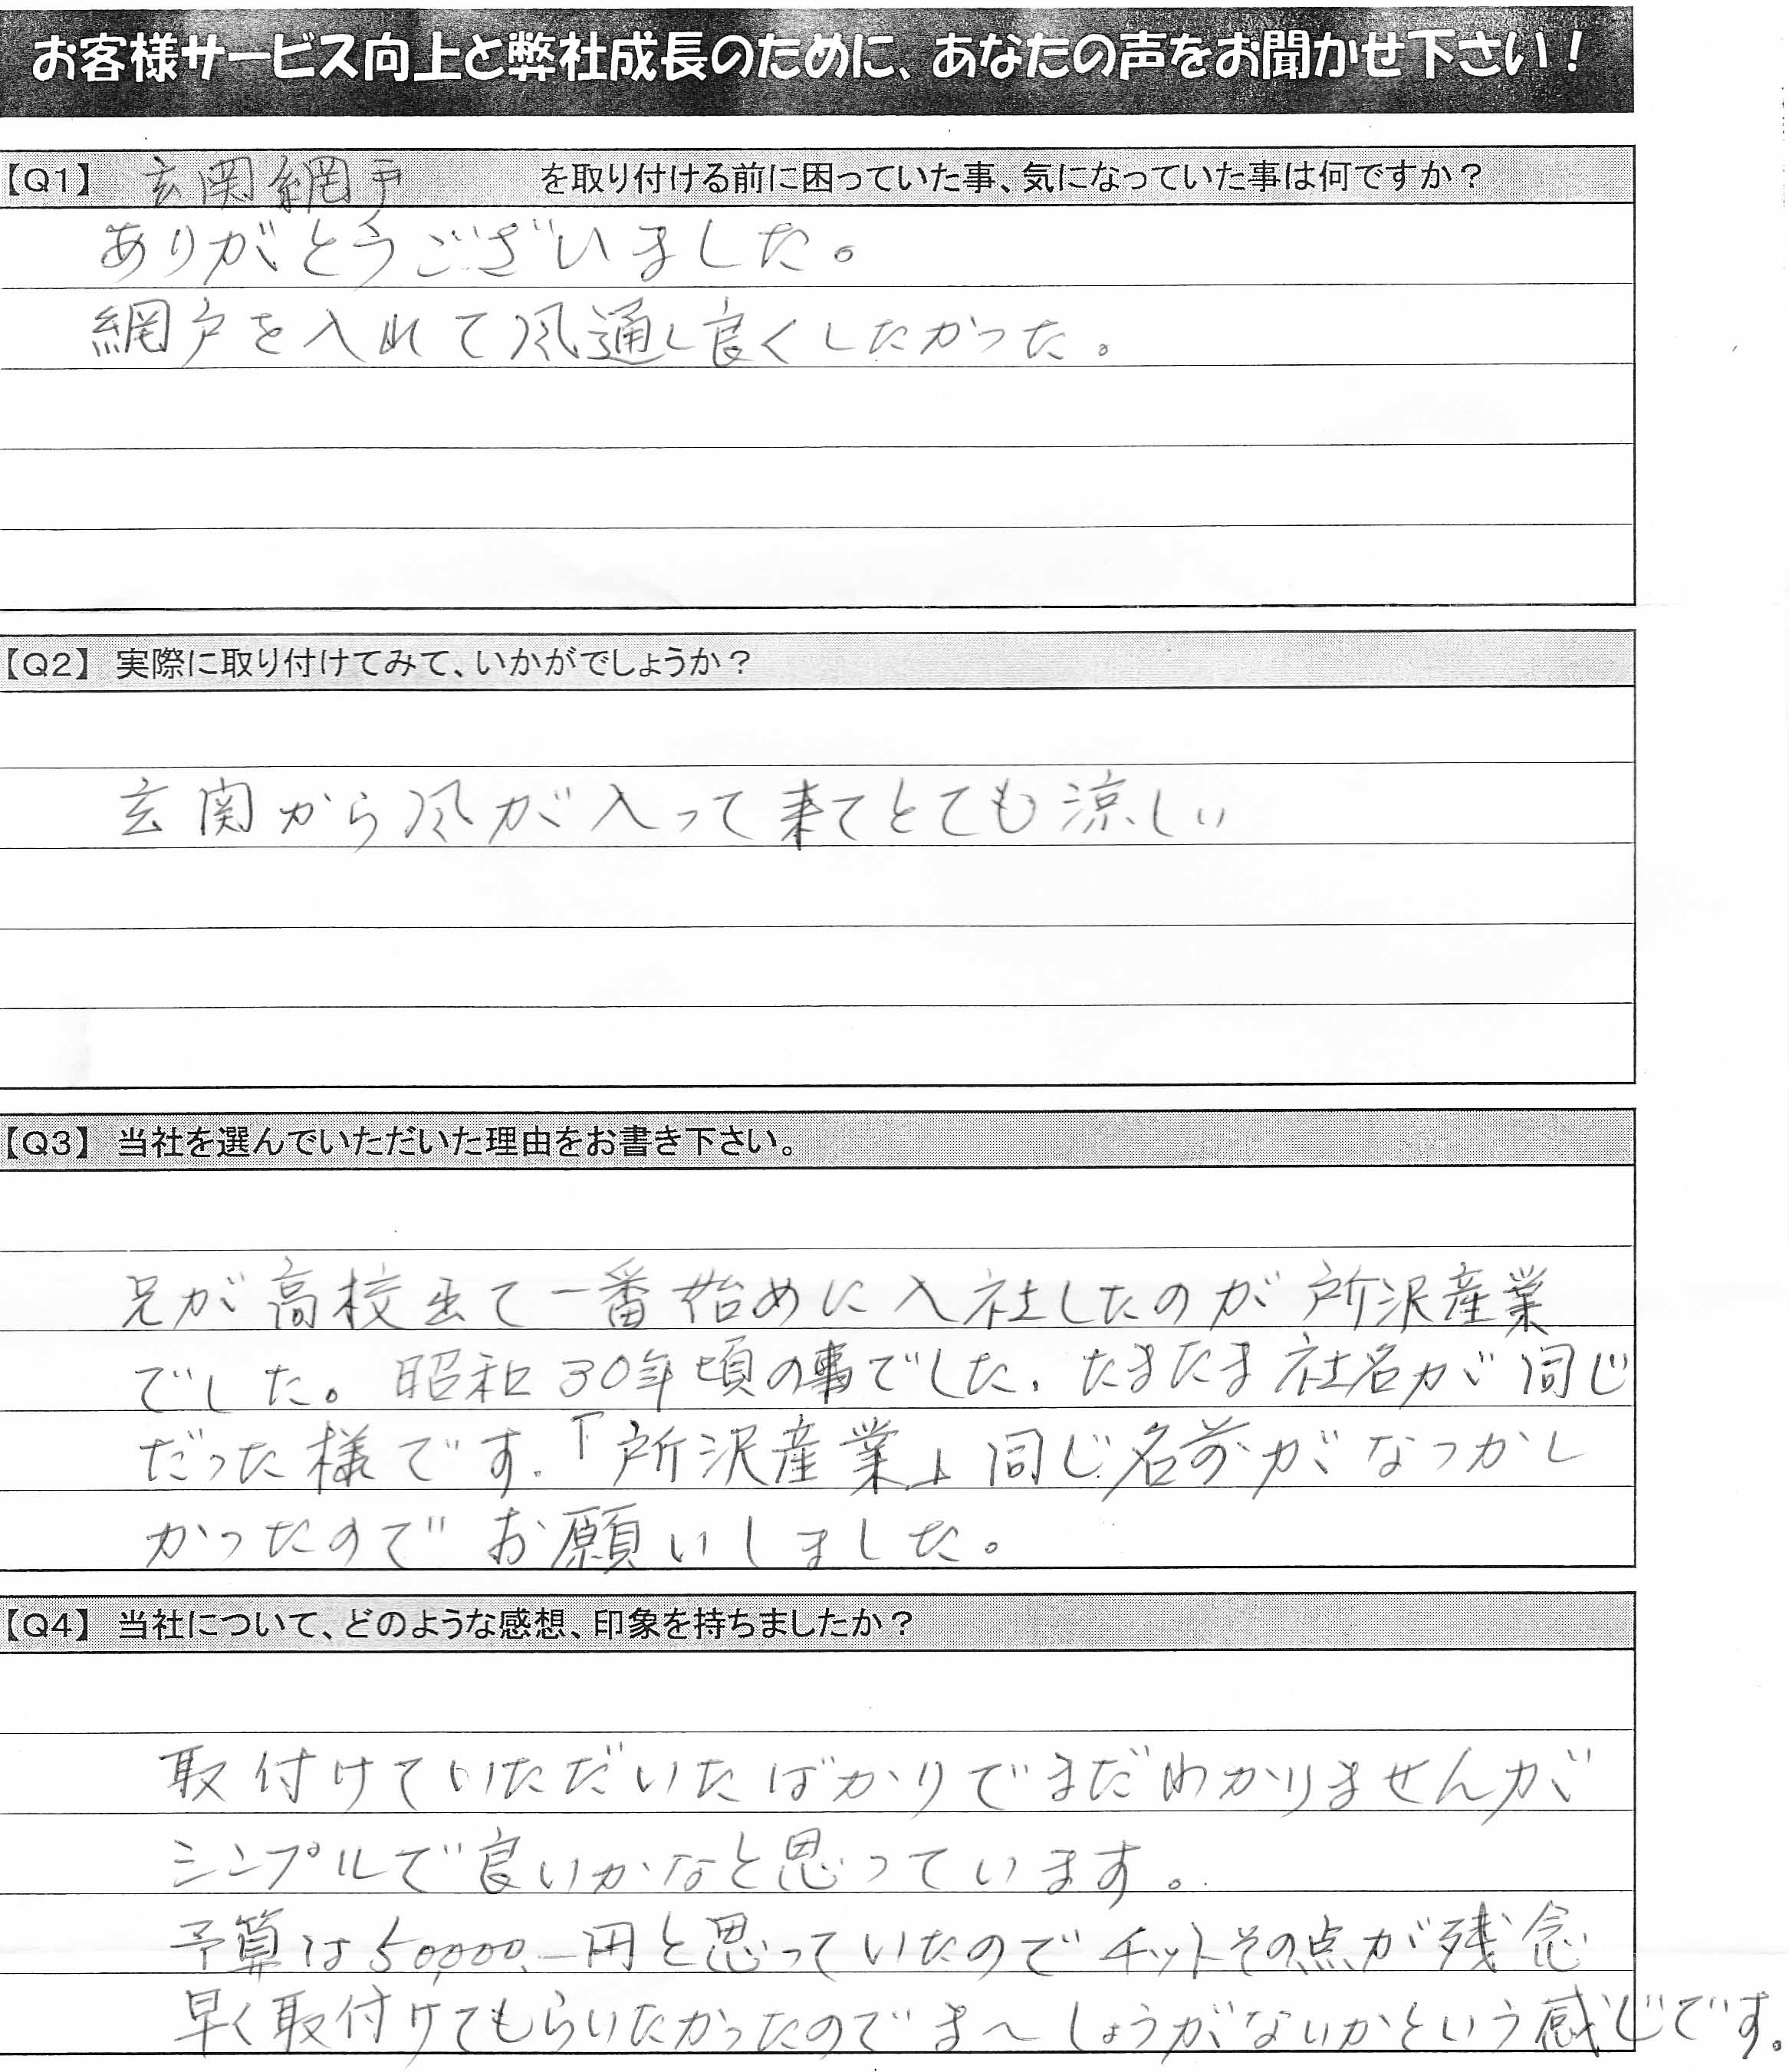 お客様サービス向上と弊社成長のために、あなたの声をお聞かせ下さい！
【Q1】 玄関網戸 を取り付ける前に困っていた事、気になっていた事は何ですか？
ありがとうございました。
網戸を入れて風通し良くしたかった。
【Q2】 実際に取り付けてみて、いかがでしょうか？
玄関から風が入って来てとても涼しい
【Q3】 当社を選んでいただいた理由をお書き下さい。
兄が高校出て一番始めに入社したのが所沢産業
でした。昭和30年頃の事でした、たまたま社名が同じ
だった様です.「所沢産業」同じ名前がなつかし
かったのでお願いしました。
【Q4】 当社について、どのような感想、印象を持ちましたか？
取付けていただいたばかりでまだわかりませんが
シンプルで良いかなと思っています。
予算は50,000.—円と思っていたのでチットその点が残念
早く取付けてもらいたかったのでま〜しょうがないかという感じです。